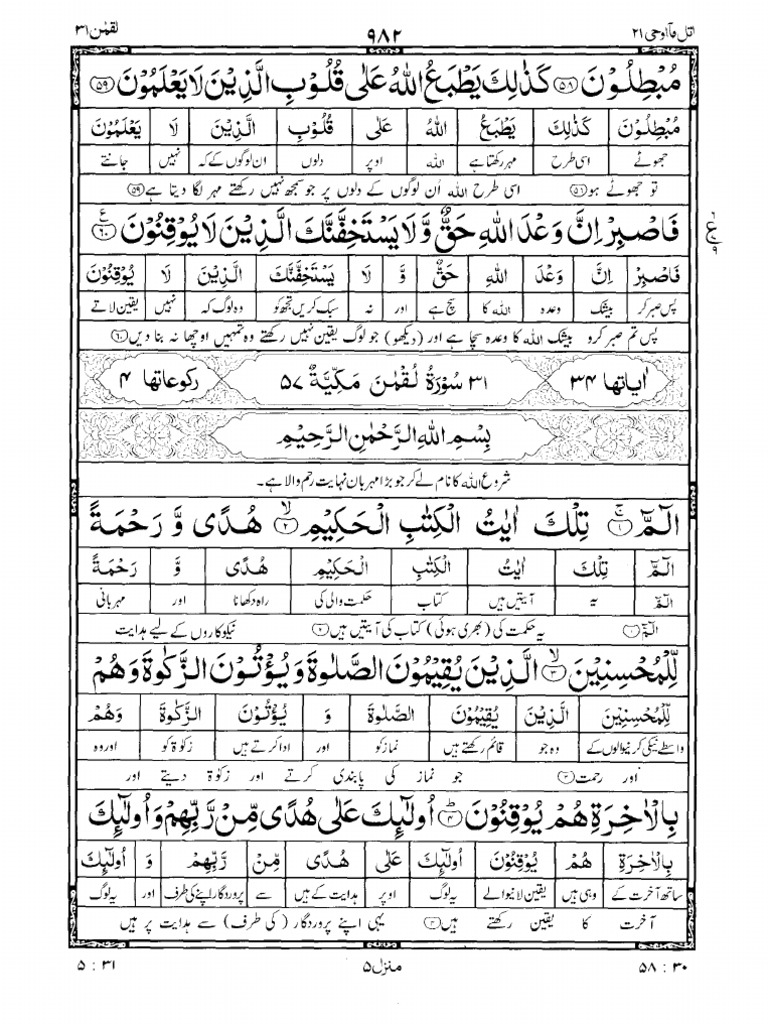 اتل ماۤ اوحی ۲۱ ۹۸۲ لقمٰن ۳۱
مُبْطِلُوْنَ ﴿۵۸﴾ كَذٰلِكَ يَطْبَعُ اللّٰهُ عَلٰى قُلُوْبِ الَّذِيْنَ لَا يَعْلَمُوْنَ ﴿۵۹﴾
مُبْطِلُوْنَ كَذٰلِكَ يَطْبَعُ اللّٰهُ عَلٰى قُلُوْبِ الَّذِيْنَ لَا يَعْلَمُوْنَ
جھوٹے اسی طرح مہر رکھتا ہے اللہ اوپر دلوں ان لوگوں کے کہ نہیں جانتے
تو جھوٹے ہو ﴿۵۸﴾ اسی طرح اللہ اُن لوگوں کے دلوں پر جو سمجھ نہیں رکھتے مہر لگا دیتا ہے ﴿۵۹﴾
فَاصْبِرْ اِنَّ وَعْدَ اللّٰهِ حَقٌّ وَّلَا يَسْتَخِفَّنَّكَ الَّذِيْنَ لَا يُوْقِنُوْنَ ﴿۶۰﴾ ع
فَاصْبِرْ اِنَّ وَعْدَ اللّٰهِ حَقٌّ وَّ لَا يَسْتَخِفَّنَّكَ الَّذِيْنَ لَا يُوْقِنُوْنَ
پس صبر کر بیشک وعدہ اللہ کا سچ ہے اور نہ سبک کریں تجھ کو وہ لوگ کہ نہیں یقین لاتے
پس تم صبر کرو بیشک اللہ کا وعدہ سچا ہے اور (دیکھو) جو لوگ یقین نہیں رکھتے وہ تمہیں اوچھا نہ بنا دیں ﴿۶۰﴾
اٰیاتها ۳۴ ۳۱ سُوْرَةُ لُقْمٰنَ مَكِّيَّةٌ ۵۷ ركوعاتها ۴
بِسْمِ اللّٰهِ الرَّحْمٰنِ الرَّحِيْمِ
شروع اللہ کا نام لے کر جو بڑا مہربان نہایت رحم والا ہے۔
الٓمّٓ ﴿۱﴾ تِلْكَ اٰيٰتُ الْكِتٰبِ الْحَكِيْمِ ﴿۲﴾ هُدًى وَّ رَحْمَةً
الٓمّٓ تِلْكَ اٰيٰتُ الْكِتٰبِ الْحَكِيْمِ هُدًى وَّ رَحْمَةً
الٓمّٓ یہ آیتیں ہیں کتاب حکمت والی کی راہ دکھانا اور مہربانی
الٓمّٓ ﴿۱﴾ یہ حکمت کی (بھری ہوئی) کتاب کی آیتیں ہیں ﴿۲﴾ نیکوکاروں کے لیے ہدایت
لِّلْمُحْسِنِيْنَ ﴿۳﴾ الَّذِيْنَ يُقِيْمُوْنَ الصَّلٰوةَ وَيُؤْتُوْنَ الزَّكٰوةَ وَهُمْ
لِّلْمُحْسِنِيْنَ الَّذِيْنَ يُقِيْمُوْنَ الصَّلٰوةَ وَ يُؤْتُوْنَ الزَّكٰوةَ وَهُمْ
واسطے نیکی کرنیوالوں کے وہ جو قائم رکھتے ہیں نماز کو اور ادا کرتے ہیں زکوٰۃ کو اور وہ
اور رحمت ﴿۳﴾ جو نماز کی پابندی کرتے اور زکوٰۃ دیتے اور
بِالْاٰخِرَةِ هُمْ يُوْقِنُوْنَ ﴿۴﴾ اُولٰٓئِكَ عَلٰى هُدًى مِّنْ رَّبِّهِمْ وَاُولٰٓئِكَ
بِالْاٰخِرَةِ هُمْ يُوْقِنُوْنَ اُولٰٓئِكَ عَلٰى هُدًى مِّنْ رَّبِّهِمْ وَ اُولٰٓئِكَ
ساتھ آخرت کے وہی ہیں یقین لانیوالے یہ لوگ اوپر ہدایت کے ہیں سے پروردگار اپنے کی طرف اور یہ لوگ
آخرت کا یقین رکھتے ہیں ﴿۴﴾ یہی اپنے پروردگار (کی طرف) سے ہدایت پر ہیں
۵۸ : ۳۰ منزل ۵ ۵ : ۳۱